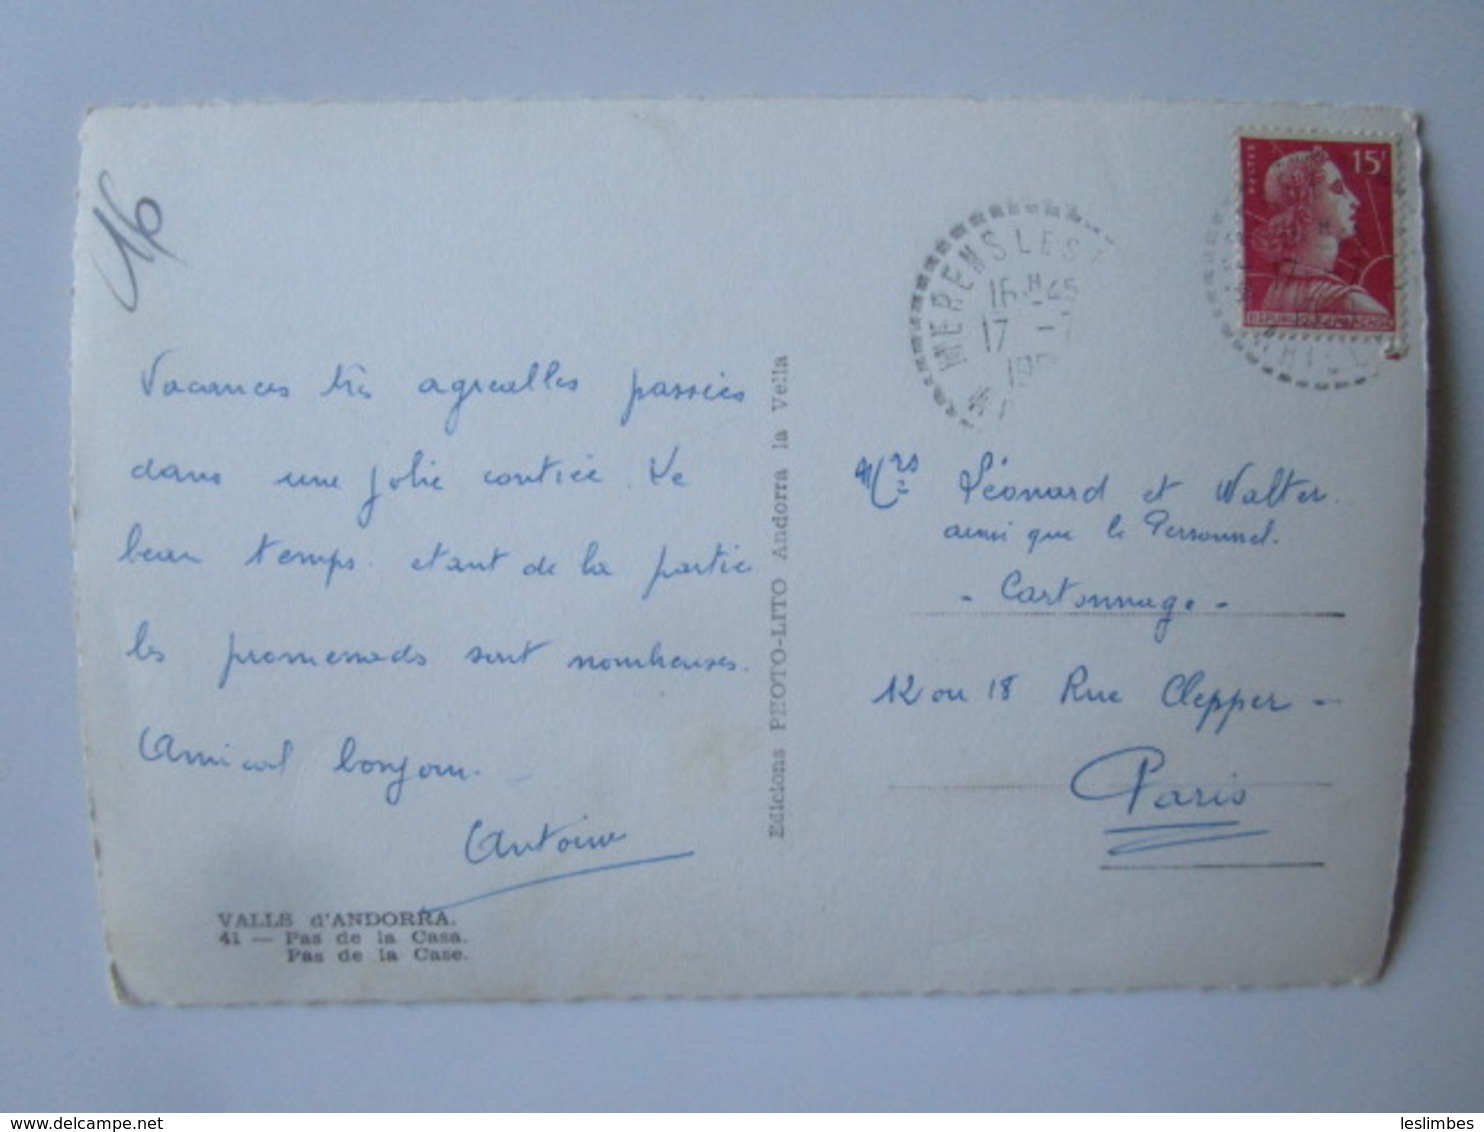 16
Vacances très agréables passées
dans une jolie contrée. Le
beau temps. etant de la partie
les promenades sont nombreuses.
Amical bonjour.
Antoine
VALLS d'ANDORRA.
41 — Pas de la Casa.
Pas de la Case.
Edicions PHOTO-LITO Andorra la Vella
MERENS LES
16H45
17 -
POSTES
15F
REPUBLIQUE FRANCAISE
Mrs Léonard et Walter
ainsi que le Personnel.
- Cartonnage -
12 ou 18 Rue Clepper -
Paris
delcampe.net
leslimbes